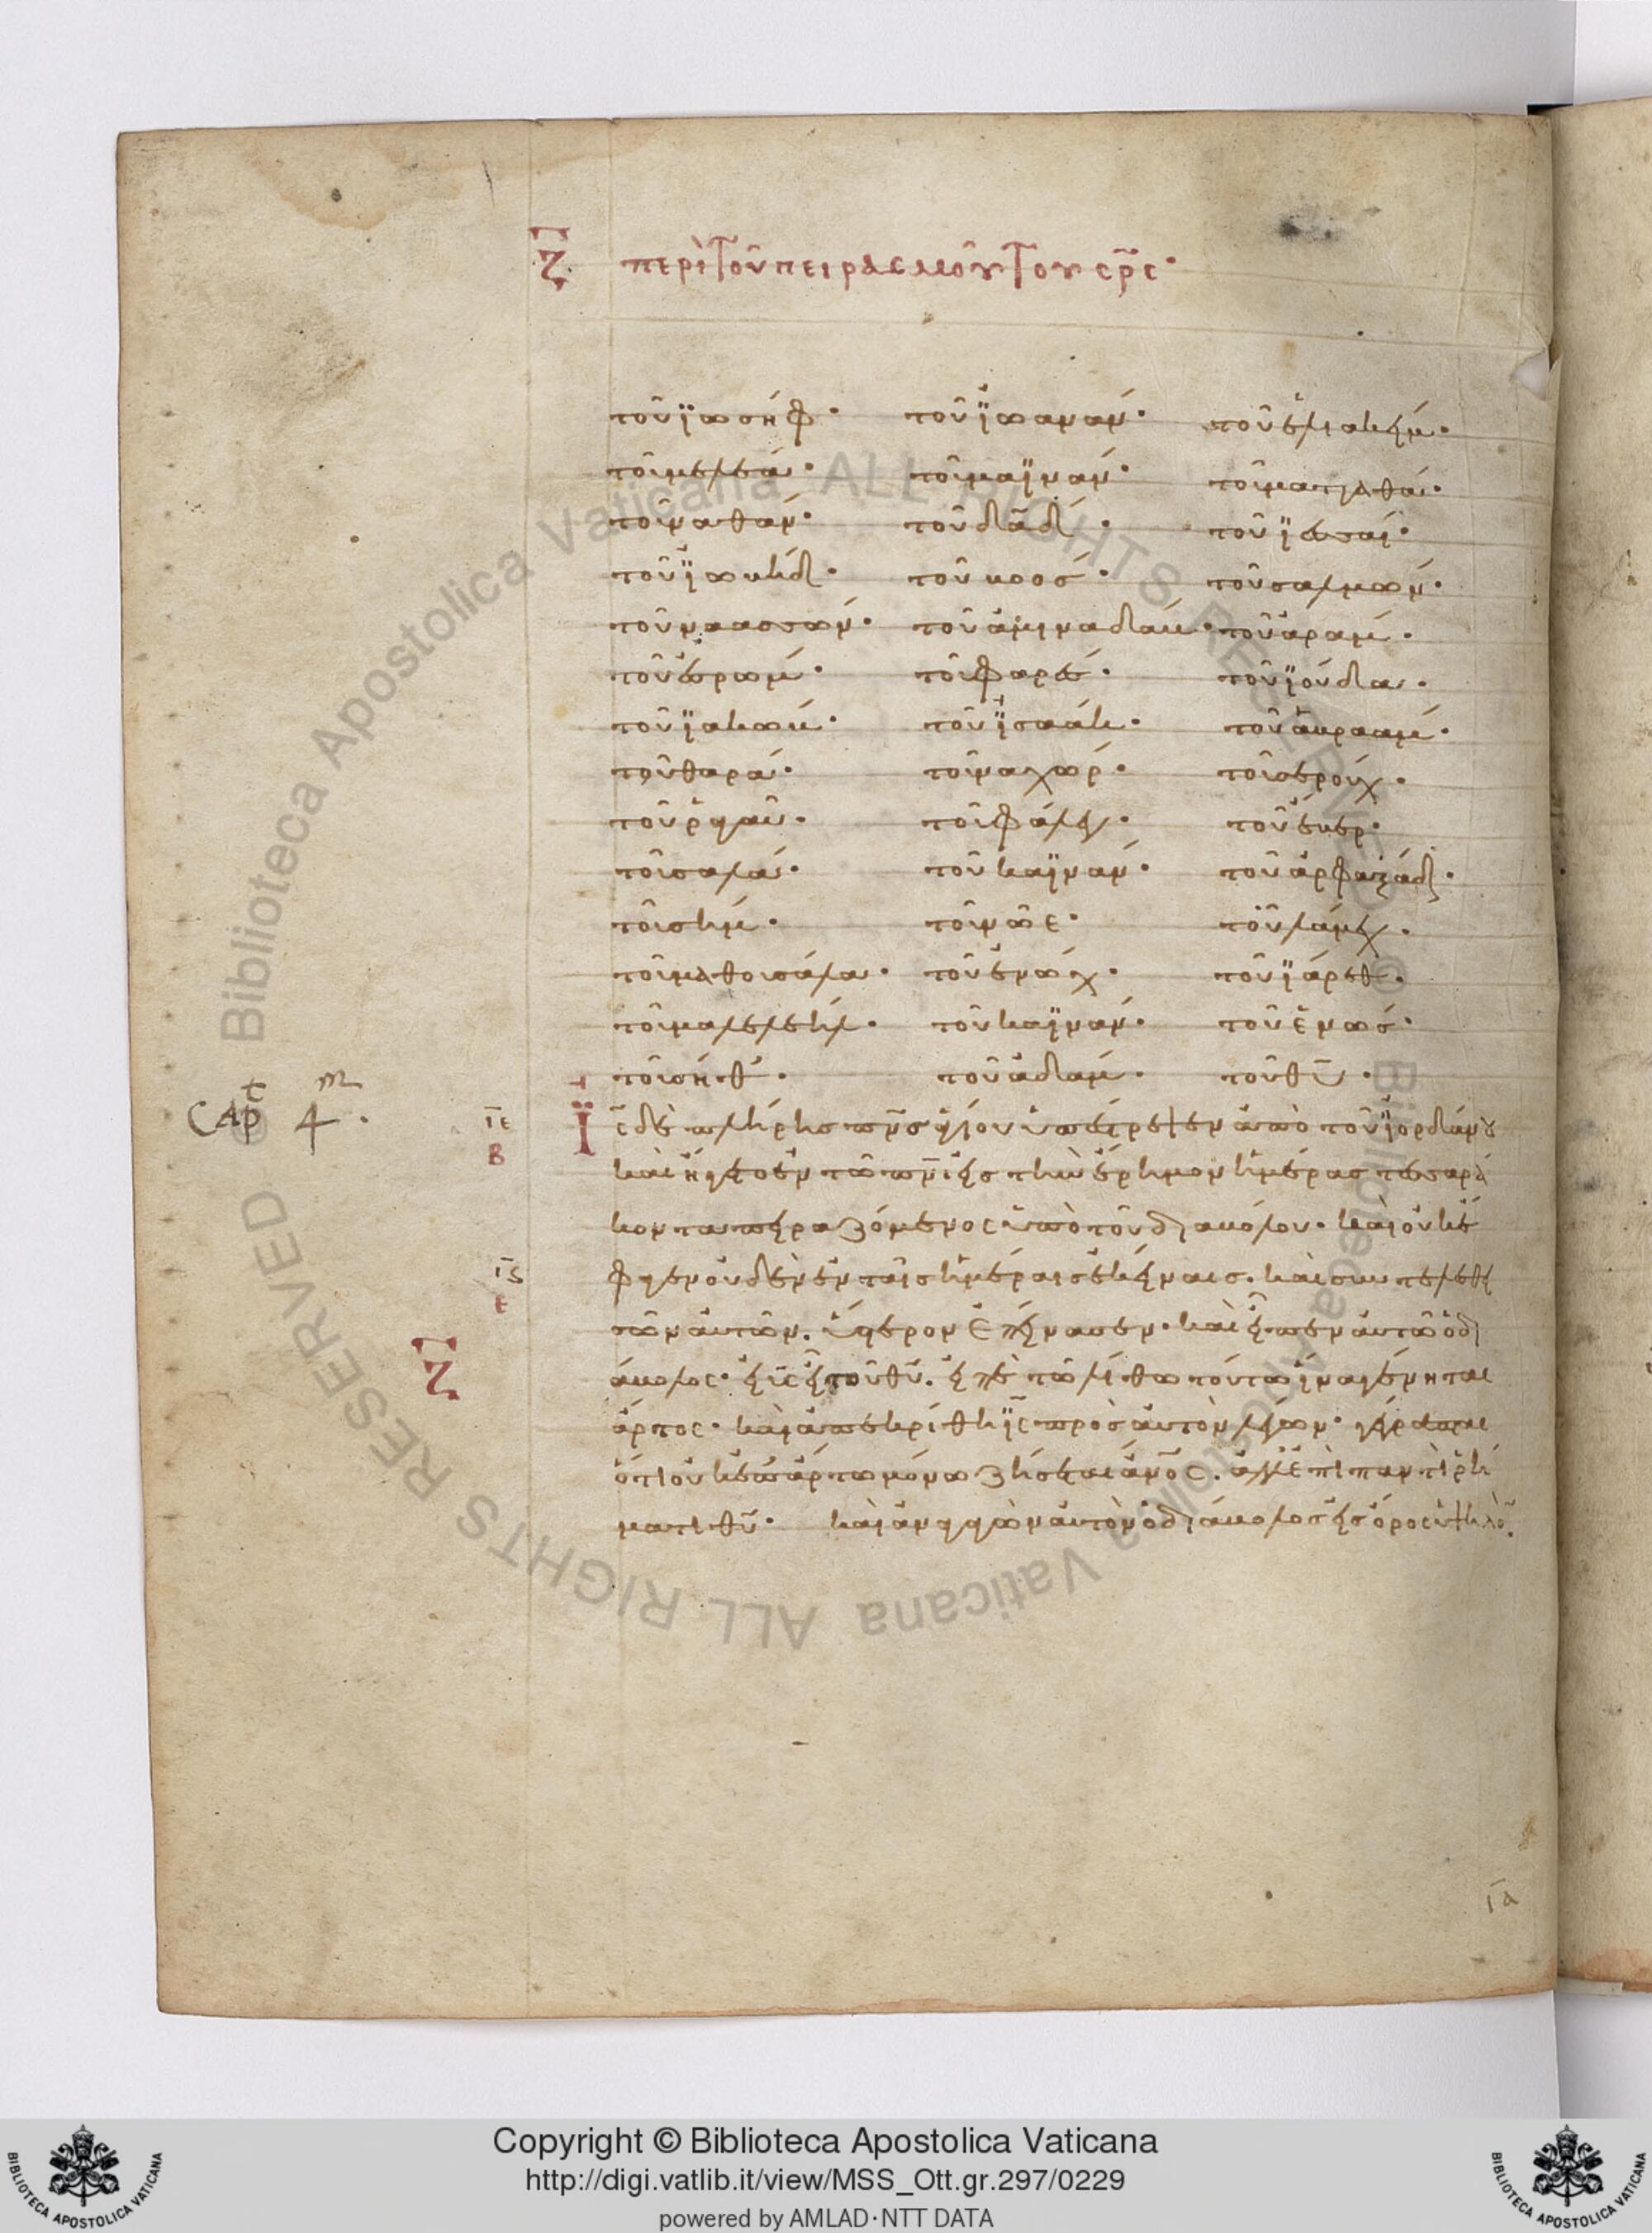 ζ περὶ τοῦ πειρασμοῦ τοῦ σρς·
τοῦ ϊωσήφ· τοῦ ϊωανάν· τοῦ ἐλιακείμ·
τοῦ μελεά· τοῦ μαϊνάν· τοῦ ματταθά·
τοῦ ναθάν· τοῦ δαδ· τοῦ ϊεσσαί·
τοῦ ϊωβήδ· τοῦ βοόσ· τοῦ σαλμών·
τοῦ ναασσών· τοῦ ἀμιναδάβ· τοῦ ἀράμ·
τοῦ ἐσρώμ· τοῦ φαρές· τοῦ ϊούδα·
τοῦ ϊακώβ· τοῦ ϊσαάκ· τοῦ ἀβραάμ·
τοῦ θαρά· τοῦ ναχώρ· τοῦ σερούχ·
τοῦ ῥαγαῦ· τοῦ φάλεγ· τοῦ ἔβερ·
τοῦ σαλά· τοῦ καϊνάν· τοῦ ἀρφαξάδ·
τοῦ σήμ· τοῦ νῶε· τοῦ λάμεχ·
τοῦ μαθουσάλα· τοῦ ἐνώχ· τοῦ ϊάρεθ·
τοῦ μαλελεήλ· τοῦ καϊνάν· τοῦ ἐνώσ·
τοῦ σήθ· τοῦ ἀδάμ· τοῦ θυ·
CAPt 4m. ιε Β Ϊς δὲ πλήρησ πνσ ἁγίου ὑπέστρεψεν ἀπὸ τοῦ ϊορδάνου
καὶ ἤγετο ἐν τῶ πνι εἰσ τὴν ἔρημον ἡμέρασ τεσσαρά
κοντα πειραζόμενος ὑπὸ τοῦ διαβόλου· καὶ οὐκ ἔ
ις Ε φαγεν οὐδὲν ἐν ταῖσ ἡμέραισ ἐκείναισ. καὶ συντελεσθει
σῶν αὐτῶν. ὕστερον ἐπείνασεν· καὶ εἶπεν αὐτῶ ὁ δι
ζ άβολος· εἰ υς εἶ τοῦ θυ. εἰπὲ τῶ λίθω τούτω ἵνα γένηται
ἄρτος· καὶ ἀπεκρίθη ϊς πρὸσ αὐτὸν λέγων· γέγραπται
ὅτι οὐκ ἐπ' ἄρτω μόνω ζήσεται ἄνος. ἀλλ' ἐπὶ παντὶ ῥή
ματι θυ· καὶ ἀναγαγὼν αὐτὸν ὁ διάβολοσ εἰσ ὄροσ ὑψηλὸν.
ια
Copyright © Biblioteca Apostolica Vaticana
http://digi.vatlib.it/view/MSS_Ott.gr.297/0229
powered by AMLAD·NTT DATA
BIBLIOTECA APOSTOLICA VATICANA
BIBLIOTECA APOSTOLICA VATICANA
© Biblioteca Apostolica Vaticana ALL RIGHTS RESERVED
© Biblioteca Apostolica Vaticana ALL RIGHTS RESERVED